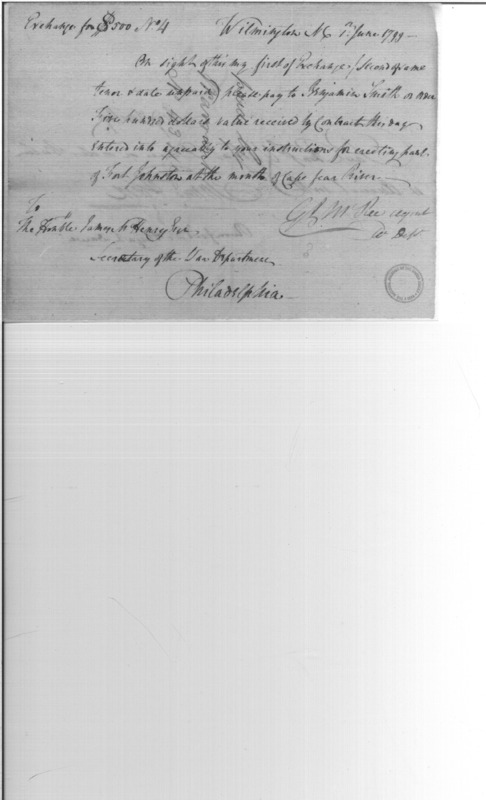 Exchange for $500 No 4 Wilmington NC 1st June 1799 —
On sight of this my first of Exchange (Second of same
tenor & date unpaid) please pay to Benjamin Smith or order
Five hundred dollars value received by Contract this day
entered into agreeably to your instructions for erecting part
of Fort Johnston at the mouth of Cape Fear River —
G J McRee agent
W Dept
To
The Honble James McHenry Esqr
Secretary of the War Department
Philadelphia —